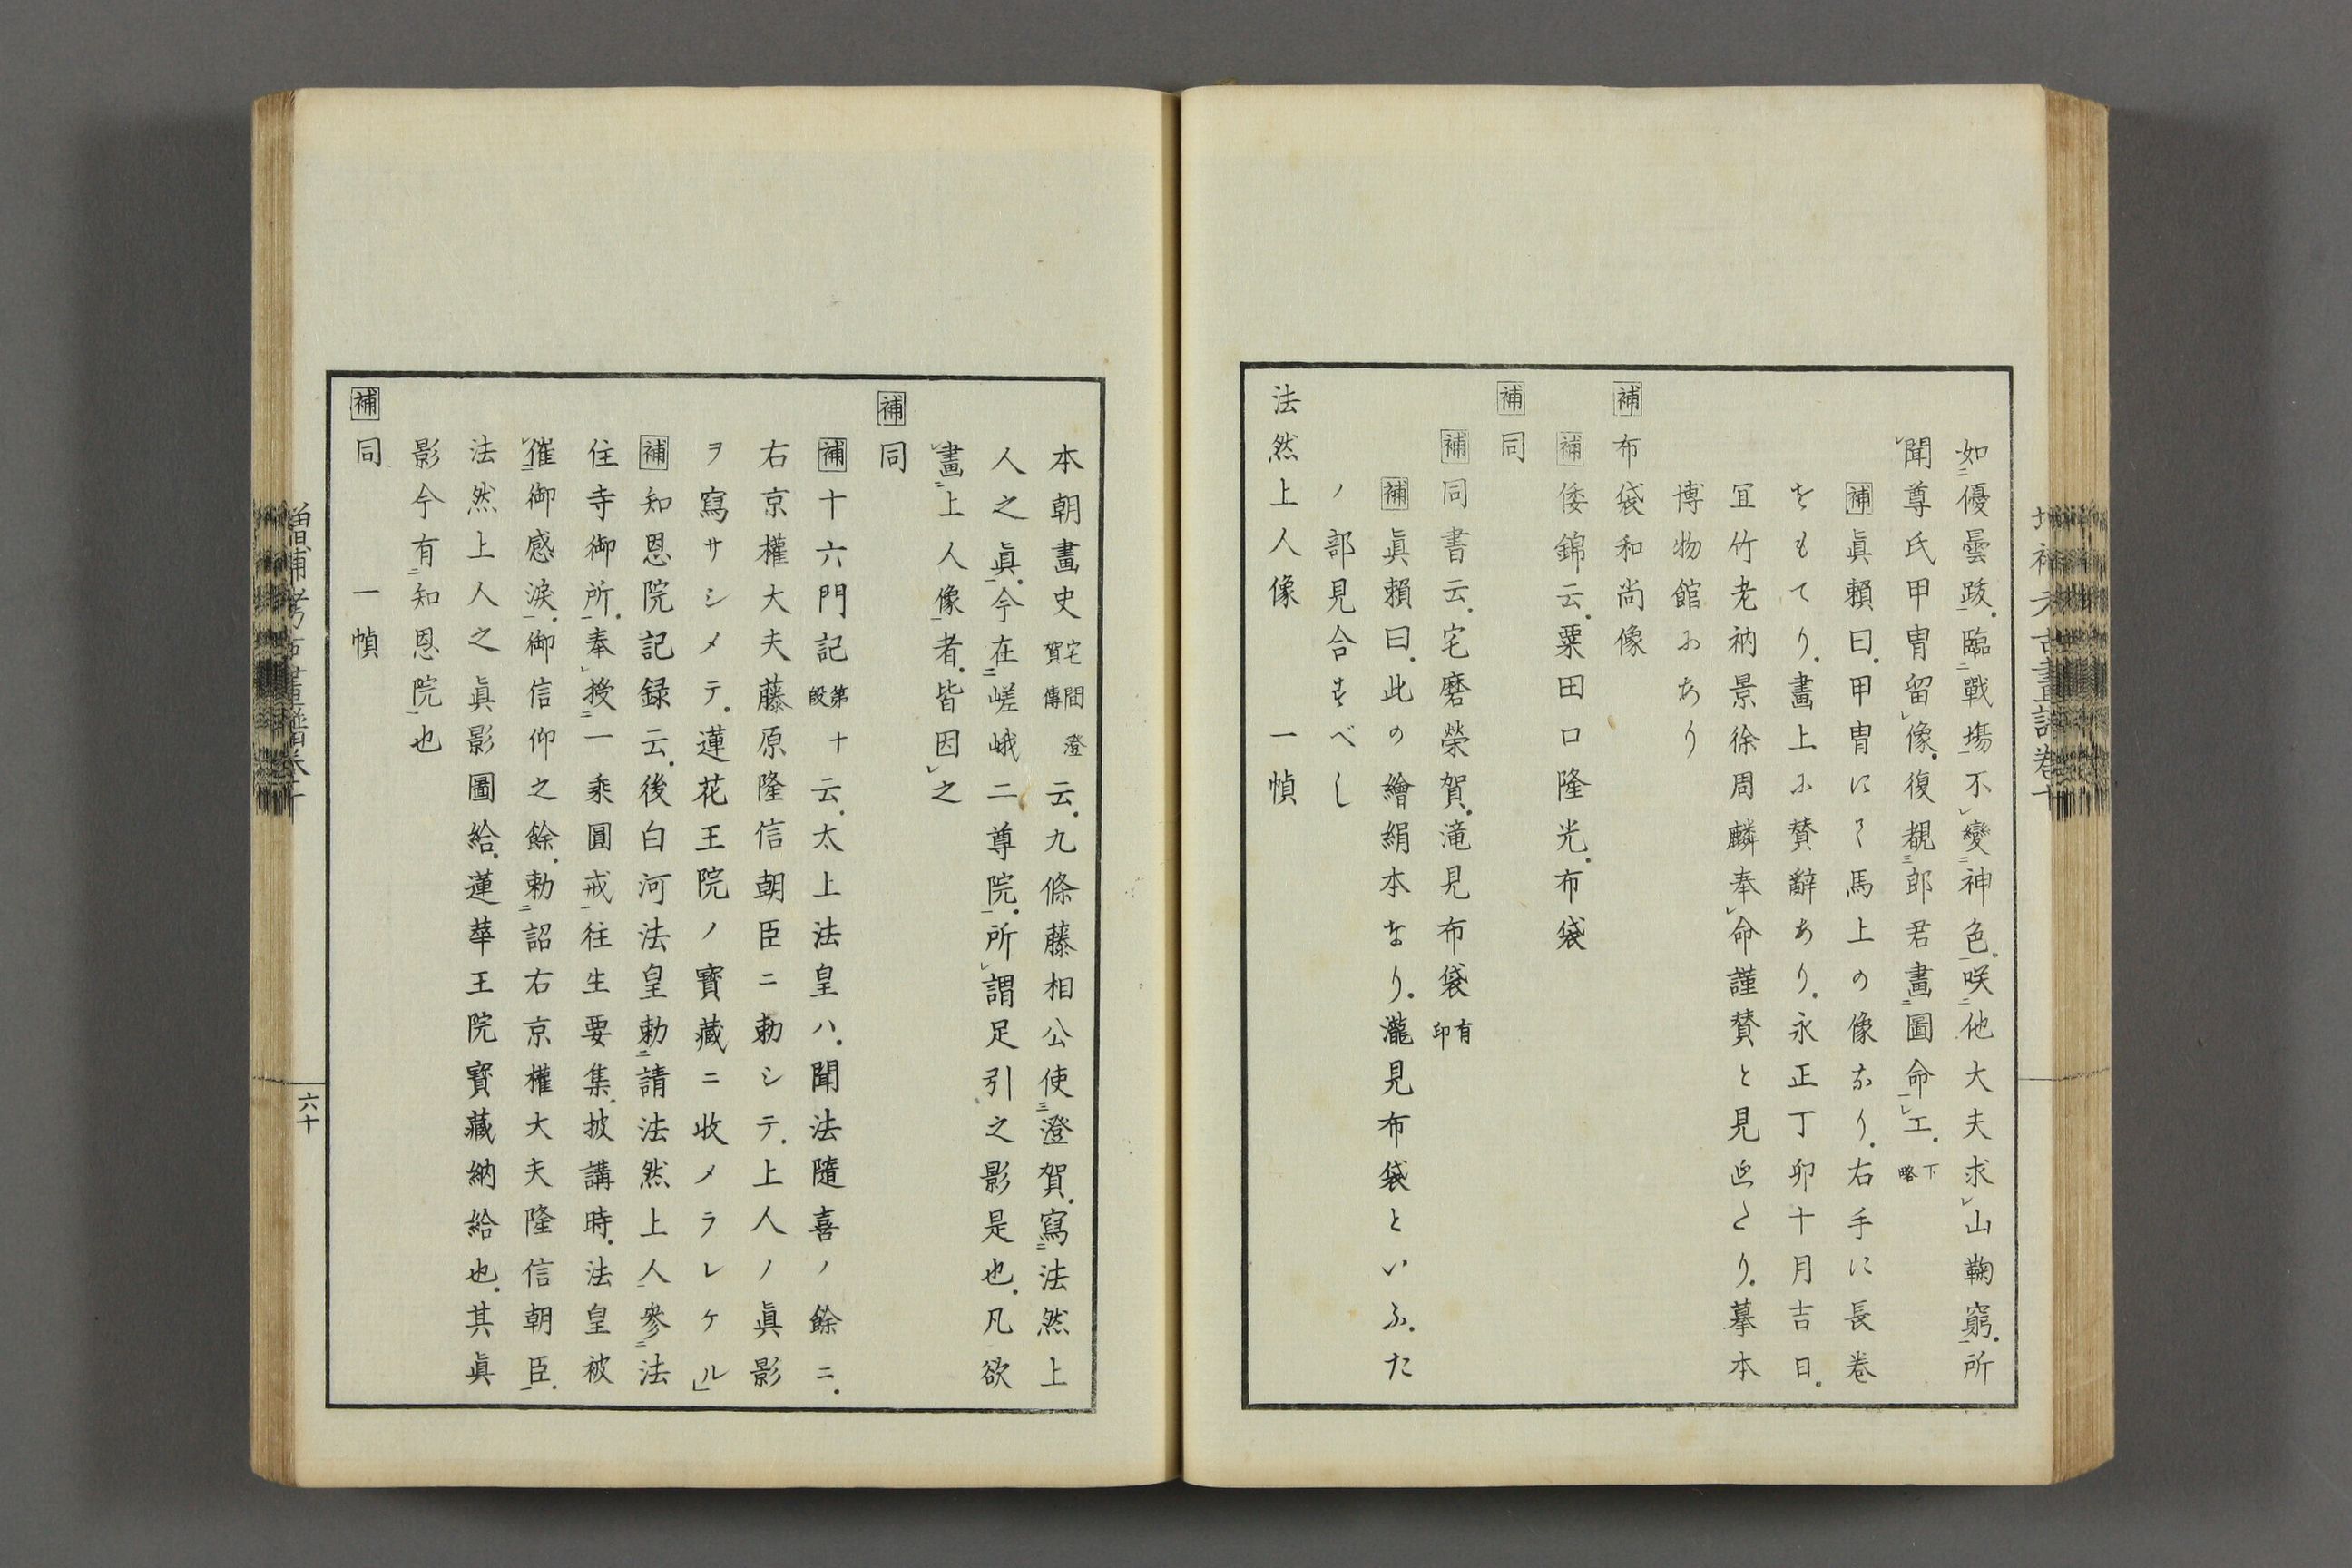 如㆓優曇跋㆒臨㆓戰塲㆒不㆑變㆓神色㆒咲㆓他大夫求㆑山鞠窮㆒所
㆑聞尊氏甲冑留㆑像復覩㆔郎君畫㆓圖命㆒㆑工下略
補眞賴曰甲冑にて馬上の像なり右手に長卷
をもてり畫上に賛辭あり永正丁卯十月吉日
宜竹老衲景徐周麟奉㆑命謹賛と見えたり摹本
博物館にあり
補布袋和尚像
補倭錦云粟田口隆光布袋
補同
補同書云宅磨榮賀滝見布袋有印
補眞賴曰此の繪絹本なり瀧見布袋といふた
ノ部見合すべし
法然上人像一幀
本朝畫史宅間澄賀傳云九條藤相公使㆔澄賀寫㆓法然上
人之眞㆒今在㆓嵯峨二尊院㆒所㆑謂足引之影是也凡欲
㆑畫㆓上人像㆒者皆因㆑之
補同
補十六門記第十段云太上法皇ハ聞法隨喜ノ餘ニ
右京權大夫藤原隆信朝臣ニ勅シテ上人ノ眞影
ヲ寫サシメテ蓮花王院ノ寳藏ニ收メラレケル」
補知恩院記録云後白河法皇勅㆓請法然上人㆒參㆓法
住寺御所㆒奉㆑授㆓一乘圓戒㆒往生要集披講時法皇被
㆑催㆓御感淚㆒御信仰之餘勅㆓詔右京權大夫隆信朝臣㆒
法然上人之眞影圖給蓮華王院寳藏納給也其眞
影今有㆓知恩院㆒也
補同一幀
六十